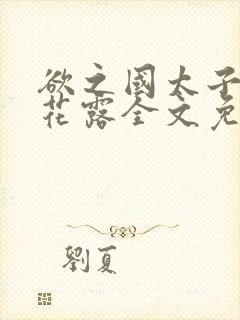 欲之國太子
花露全文免
劉夏